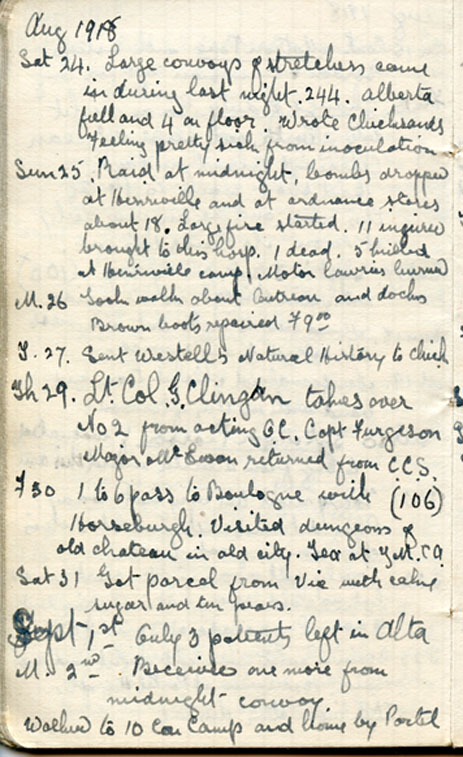 Aug 1918
Sat 24. Large convoys of stretchers came
in during last night. 244. Alberta
full and 4 on floor. Wrote Chicksands
Feeling pretty sick from inoculation
Sun 25. Raid at midnight, bombs dropped
at Henriville and at ordnance stores
about 18. Large fire started. 11 injured
brought to this hosp. 1 dead. 5 killed
at Henriville camp, Motor lawries burned
M. 26 Took walk about Outreau and docks
Brown boots repaired F9.00
T. 27. Sent Westell's Natural History to Chick
Th 29. Lt. Col. G. Clingan takes over
No 2 from acting O.C. Capt Furgeson
Major McEwan returned from C.C.S.
F 30 1 to 6 pass to Boulogne with (106)
Horseburgh. Visited dungeons of
old chateau in old city. Tea at Y.M.CA
Sat 31 Got parcel from Vic with cake
sugar and tin pears.
Sept, 1st Only 3 patients left in Alta
M. 2nd Receive one more from
midnight convoy
Walked to 10 Can Camp and home by Portel